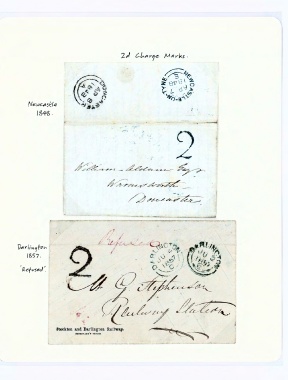 2d Charge Marks.
Newcastle
1848.
DONCASTER
AP 8
1848
A
NEWCASTLE-ON-TYNE
AP 7
1848
2
William Aldam Esqr
Doncaster
Darlington
1857.
"Refused"
Refused
DARLINGTON
1857
DARLINGTON
1857
2
Mr G Stephenson
Railway Station
Stockton and Darlington Railway.